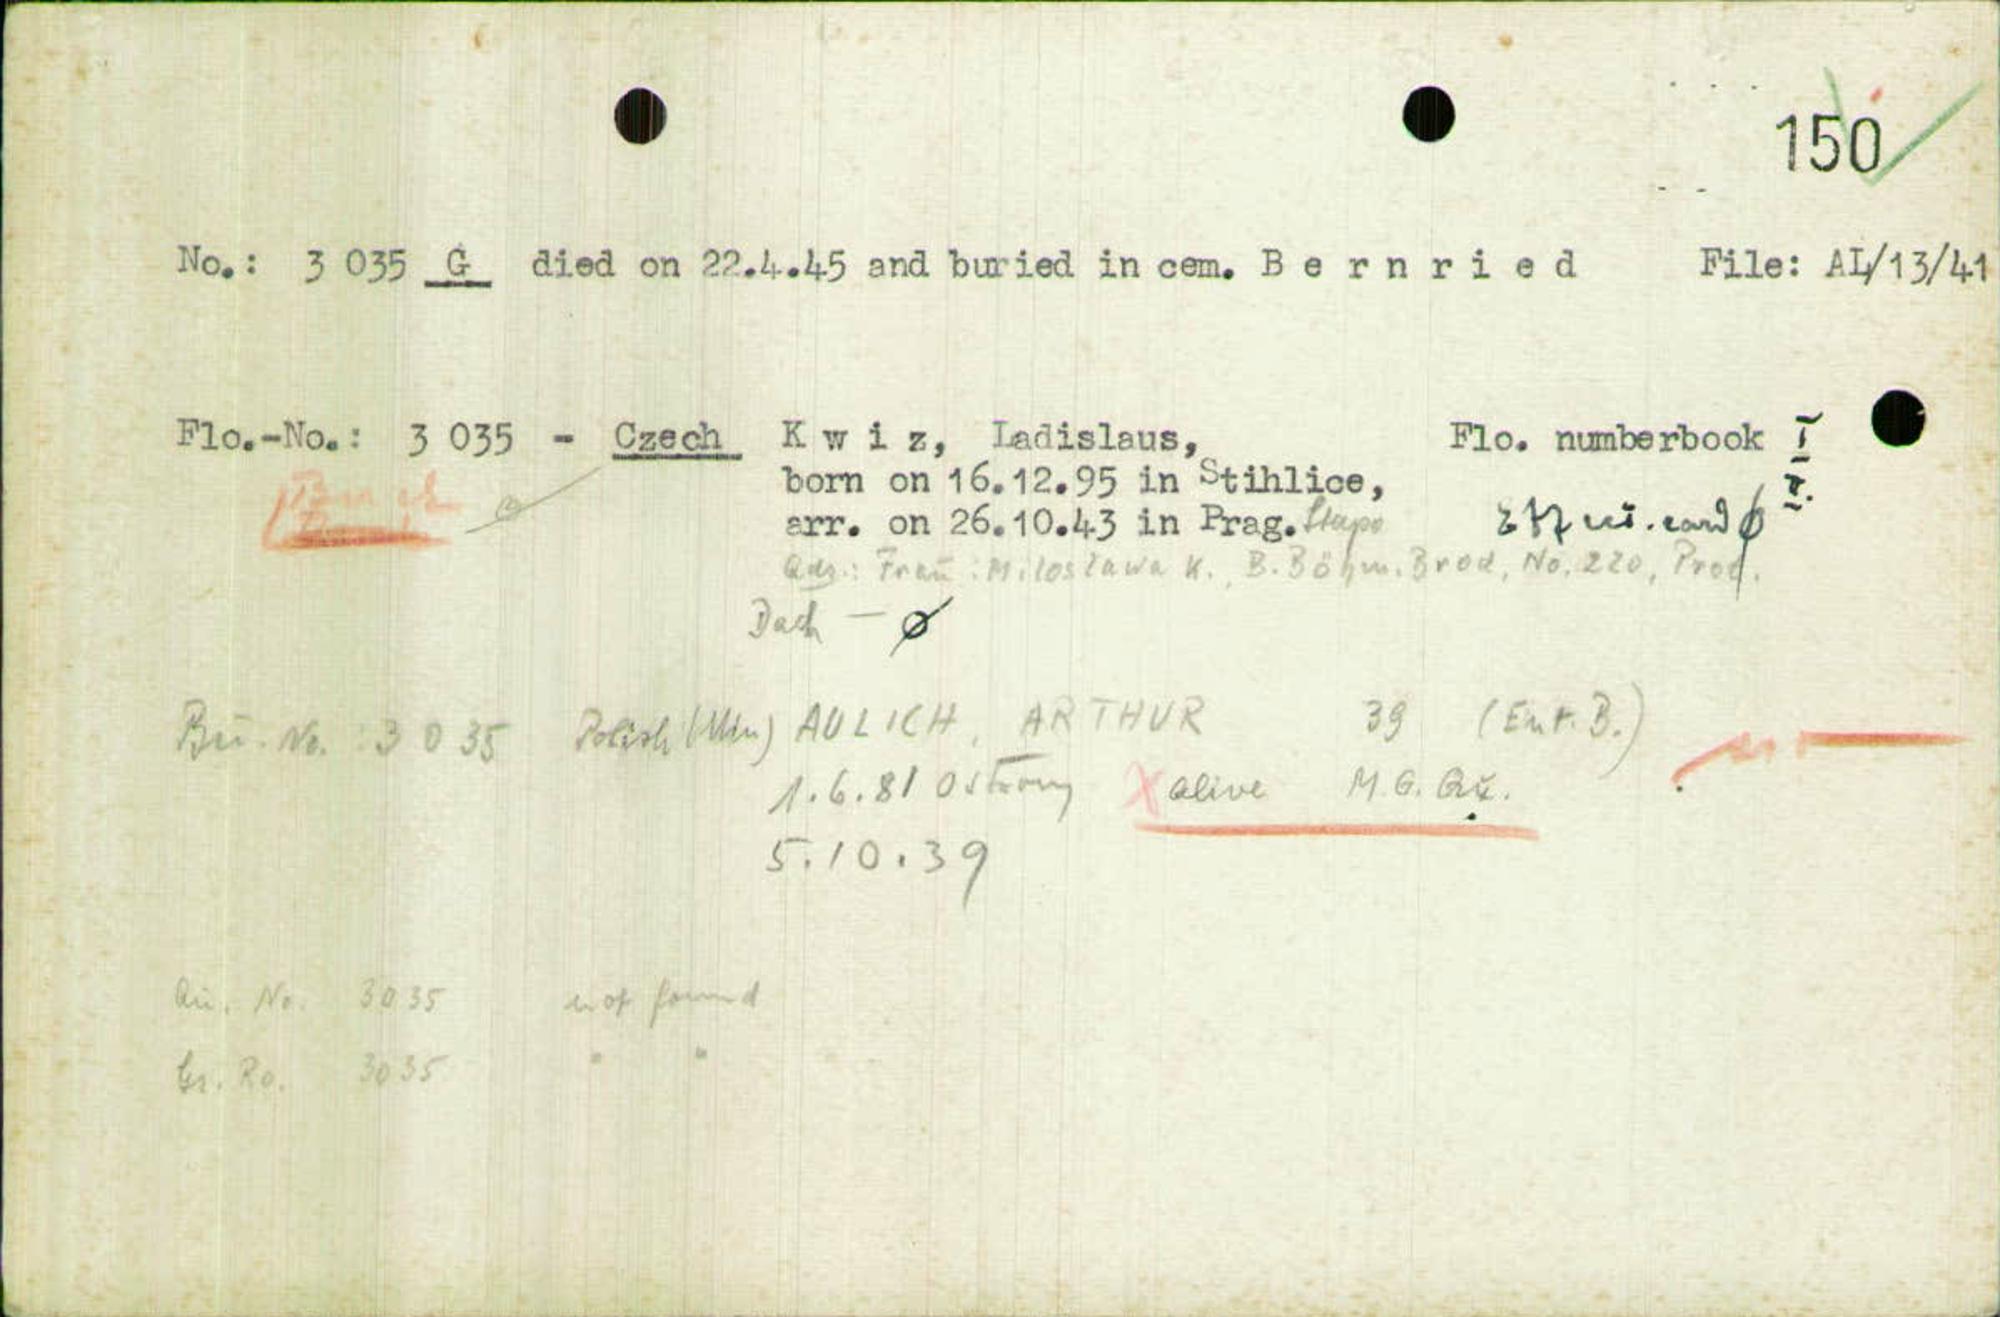 150
No.: 3 035 G died on 22.4.45 and buried in cem. B e r n r i e d File: AL/13/41
Flo.-No.: 3 035 - Czech K w i z, Ladislaus, Flo. numberbook I
born on 16.12.95 in Stihlice, II.
arr. on 26.10.43 in Prag. Stapo card ϕ
Frau: Miloslawa K., B. Böhm. Brod, No. 220, Prot.
Dach - ϕ
Bu. No. : 3 0 35 Polish AULICH, ARTHUR 39 (Ent. B.)
1.6.81 Ostrong X alive M.G. Qu.
5.10.39
Au. No. 3035 not found
Gr. Ro. 3035 " "